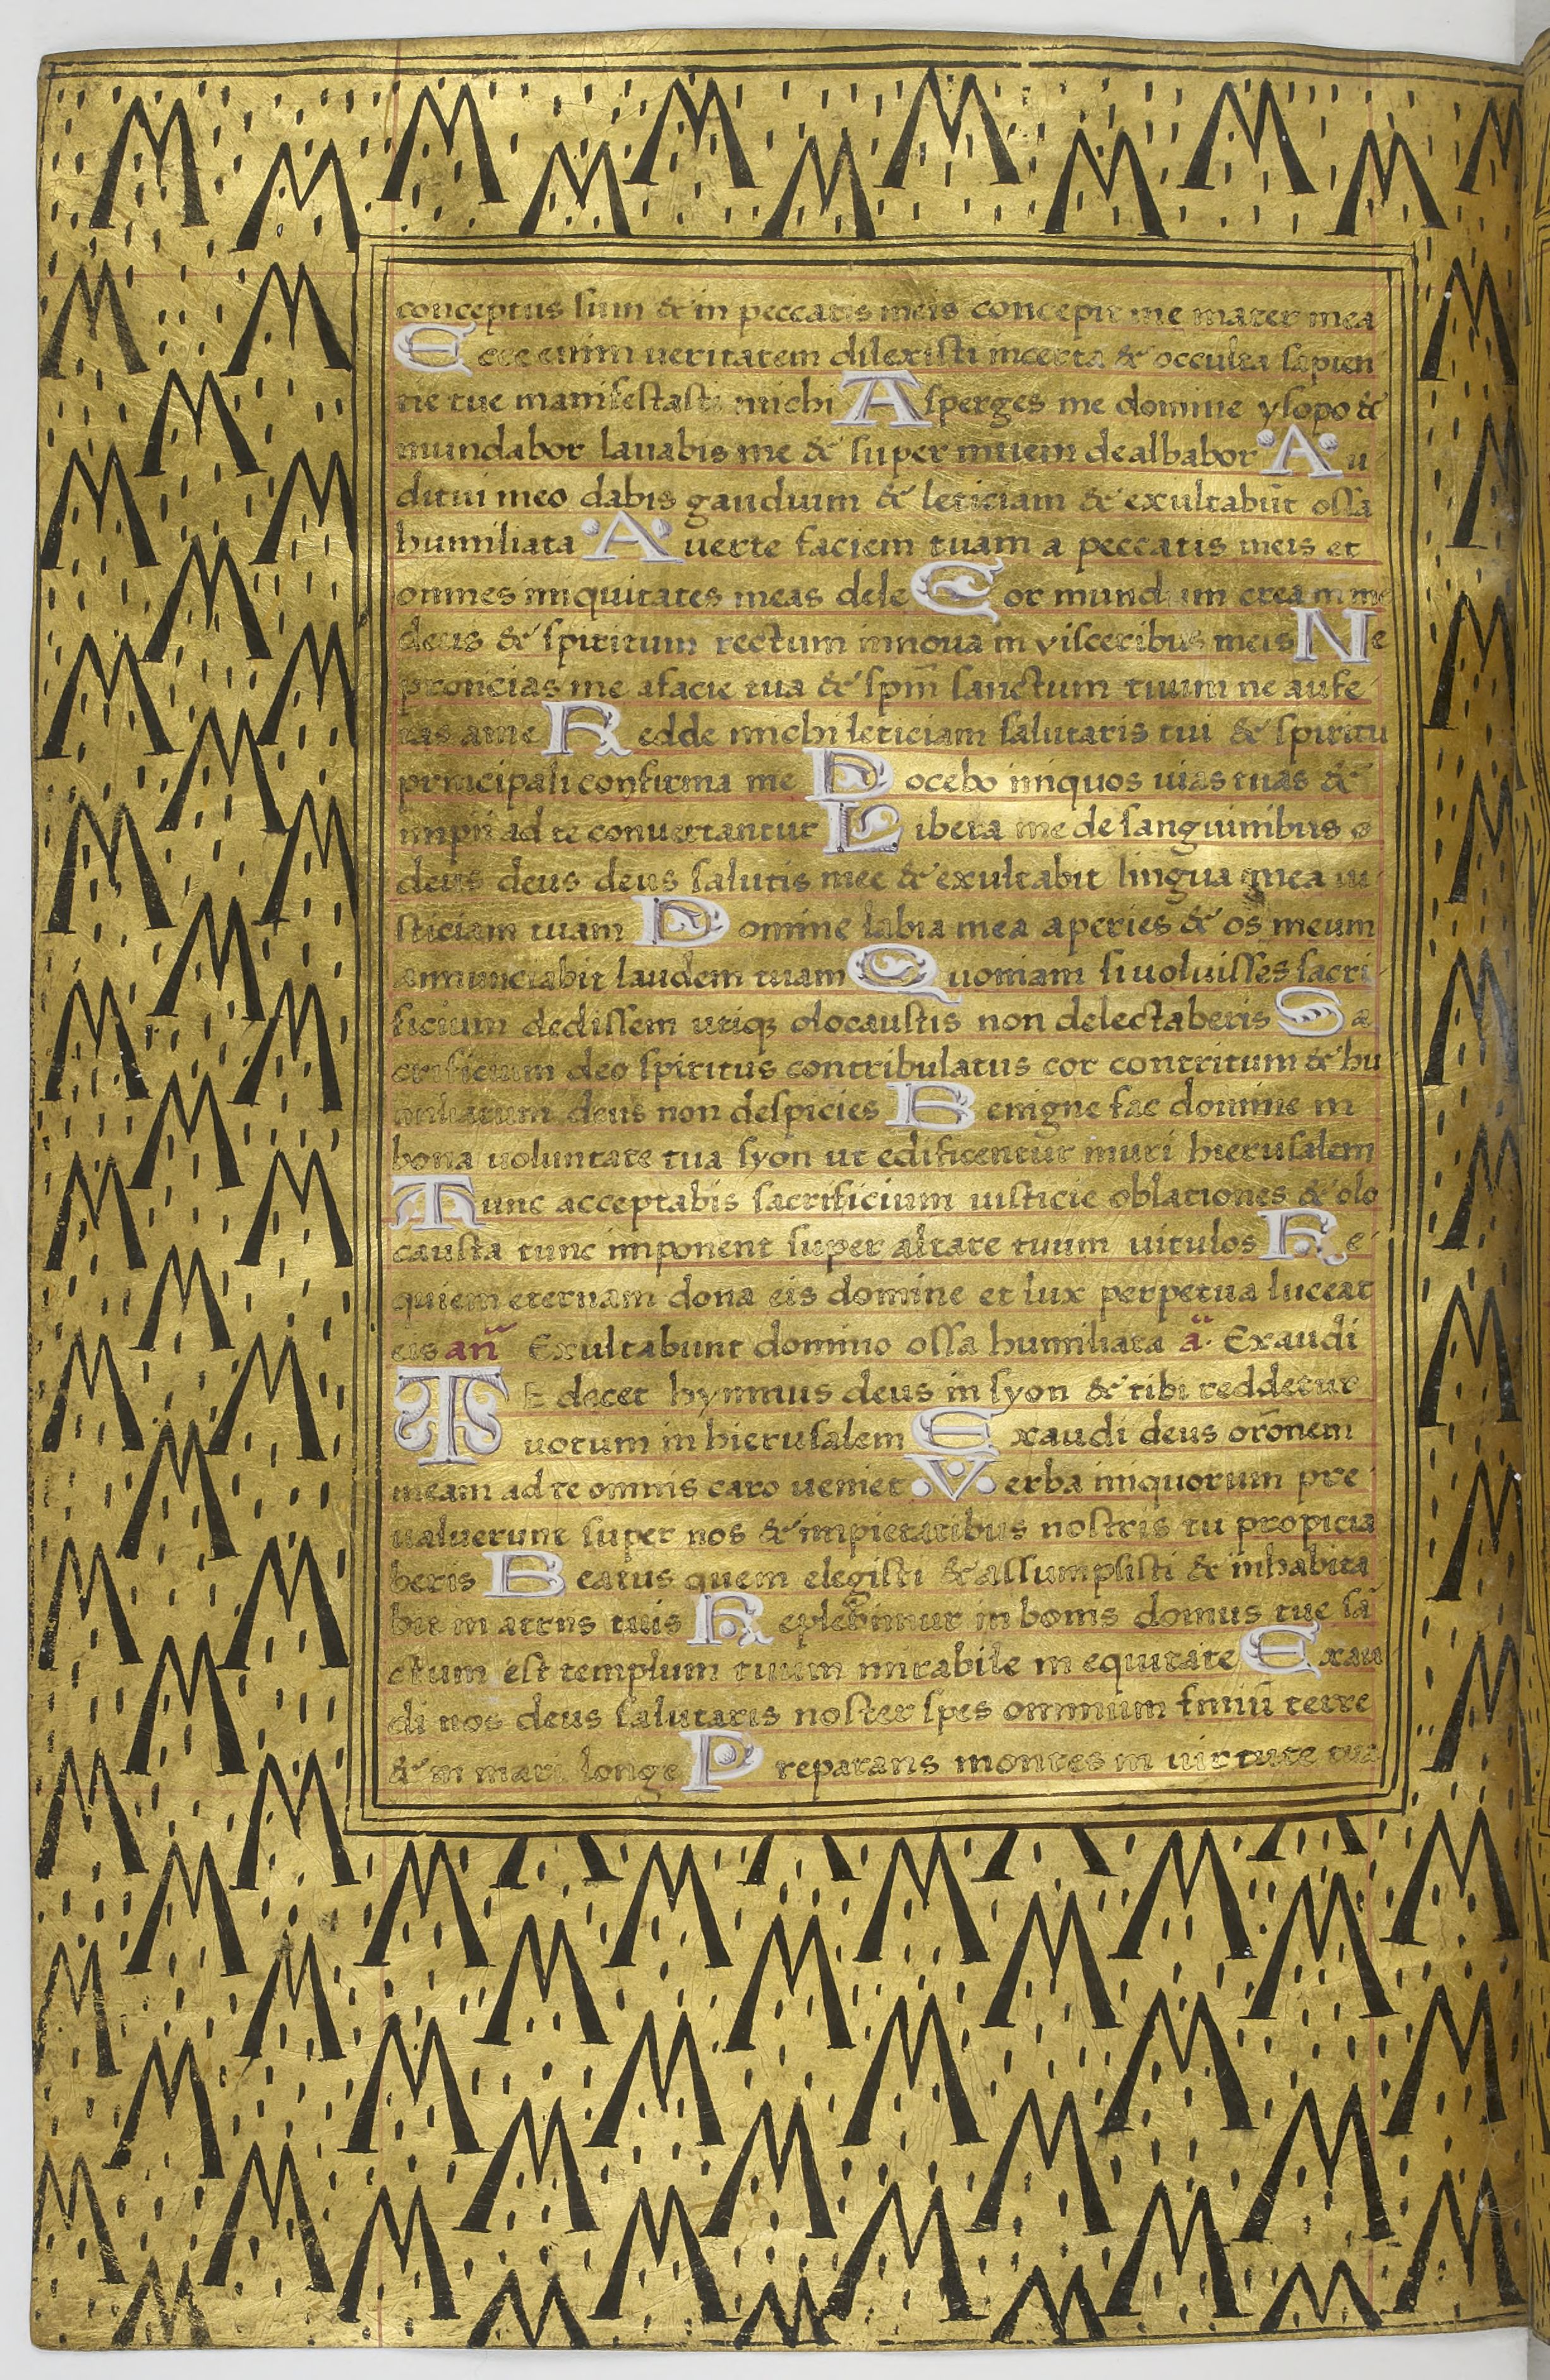 conceptus sum & in peccatis meis concepit me mater mea
Ecce enim ueritatem dilexisti incerta & occulta sapien
tie tue manifestasti michi Asperges me domine ysopo &
mundabor lauabis me & super niuem dealbabor Au
ditui meo dabis gaudium & leticiam & exultabūt ossa
humiliata Auerte faciem tuam a peccatis meis et
omnes iniquitates meas dele Cor mundum crea in me
deus & spiritum rectum innoua in visceribus meis Ne
proicias me a facie tua & spm̄ sanctum tuum ne aufe
ras a me Redde michi leticiam salutaris tui & spiritu
principali confirma me Docebo iniquos uias tuas &
impii ad te conuertantur Libera me de sanguinibus
deus deus deus salutis mee & exultabit lingua mea iu
sticiam tuam Domine labia mea aperies & os meum
annunciabit laudem tuam Quoniam si uoluisses sacri
ficium dedissem utiqꝫ olocaustis non delectaberis Sa
crificium deo spiritus contribulatus cor contritum & hu
miliatum deus non despicies Benigne fac domine in
bona uoluntate tua syon ut edificentur muri hierusalem
Tunc acceptabis sacrificium iusticie oblationes & olo
causta tunc imponent super altare tuum uitulos Re
quiem eternam dona eis domine et lux perpetua luceat
eis an̄ Exultabunt domino ossa humiliata ā. Exaudi
TE decet hymnus deus in syon & tibi reddetur
uotum in hierusalem Exaudi deus orōnem
meam ad te omnis caro ueniet Verba iniquorum pre
ualuerunt super nos & impietatibus nostris tu propicia
beris Beatus quem elegisti & assumpsisti & inhabita
bit in atriis tuis Replebimur in bonis domus tue sā
ctum est templum tuum mirabile in equitate Exau
di nos deus salutaris noster spes omnium finiū terre
& in mari longe Preparans montes in uirtute tua